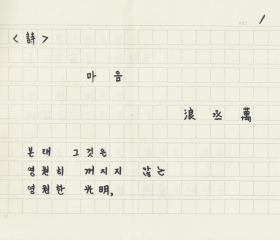 1
<詩>
마음
浪丞萬
본래 그것은
영원히 꺼지지 않는
영원한 光明,